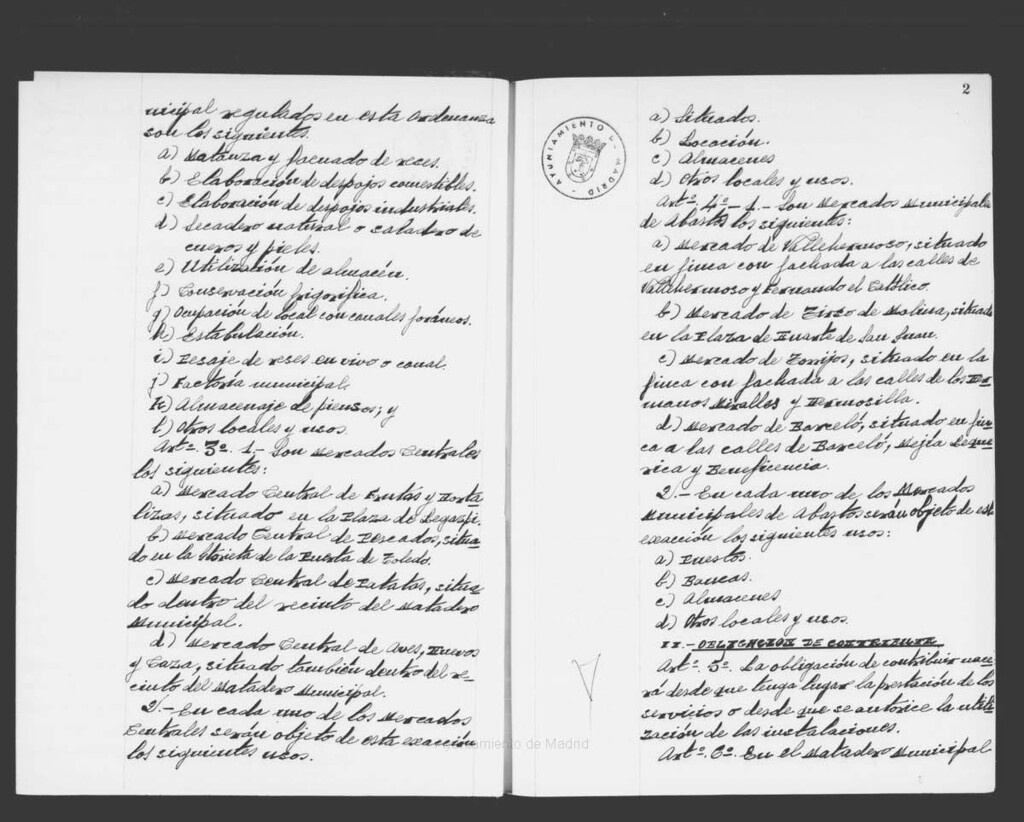 nicipal regulados en esta Ordenanza
son los siguientes.
a) Matanza y faenado de reses.
b) Elaboración de despojos comestibles.
c) Elaboración de despojos industriales.
d) Secadero natural o saladero de
cueros y pieles.
e) Utilización de almacén.
f) Conservación frigorífica.
g) Ocupación de local con canales foráneos.
h) Estabulación.
i) Pesaje de reses en vivo o canal.
j) Factoría municipal.
k) Almacenaje de piensos; y
l) Otros locales y usos.
Artº. 3º. 1.- Son Mercados Centrales
los siguientes:
a) Mercado Central de Frutas y Horta
lizas, situado en la Plaza de Legazpi.
b) Mercado Central de Pescados, situa-
do en la Glorieta de la Puerta de Toledo.
c) Mercado Central de Patatas, situa-
do dentro del recinto del Matadero
Municipal.
d) Mercado Central de Aves, Huevos
y Caza, situado también dentro del re-
cinto del Matadero Municipal.
2.- En cada uno de los Mercados
Centrales serán objeto de esta exacción
los siguientes usos.
2
AYUNTAMIENTO DE MADRID
a) Situados.
b) Locación.
c) Almacenes
d) Otros locales y usos.
Artº. 4º.- 1.- Son Mercados Municipales
de Abastos los siguientes:
a) Mercado de Vallehermoso, situado
en finca con fachada a las calles de
Vallehermoso y Fernando el Católico.
b) Mercado de Tirso de Molina, situado
en la Plaza de Huarte de San Juan.
c) Mercado de Torrijos, situado en la
finca con fachada a las calles de los Her
manos Miralles y Hermosilla.
d) Mercado de Barceló, situado en fin-
ca a las calles de Barceló, Mejía Leque
rica y Beneficencia.
2.- En cada uno de los Mercados
Municipales de Abastos serán objeto de esta
exacción los siguientes usos:
a) Puestos.
b) Bancas.
c) Almacenes
d) Otros locales y usos.
II.- OBLIGACION DE CONTRIBUIR
Artº. 5º. La obligación de contribuir nace-
rá desde que tenga lugar la prestación de los
servicios o desde que se autorice la utili-
zación de las instalaciones.
Artº. 6º. En el Matadero Municipal
Ayuntamiento de Madrid